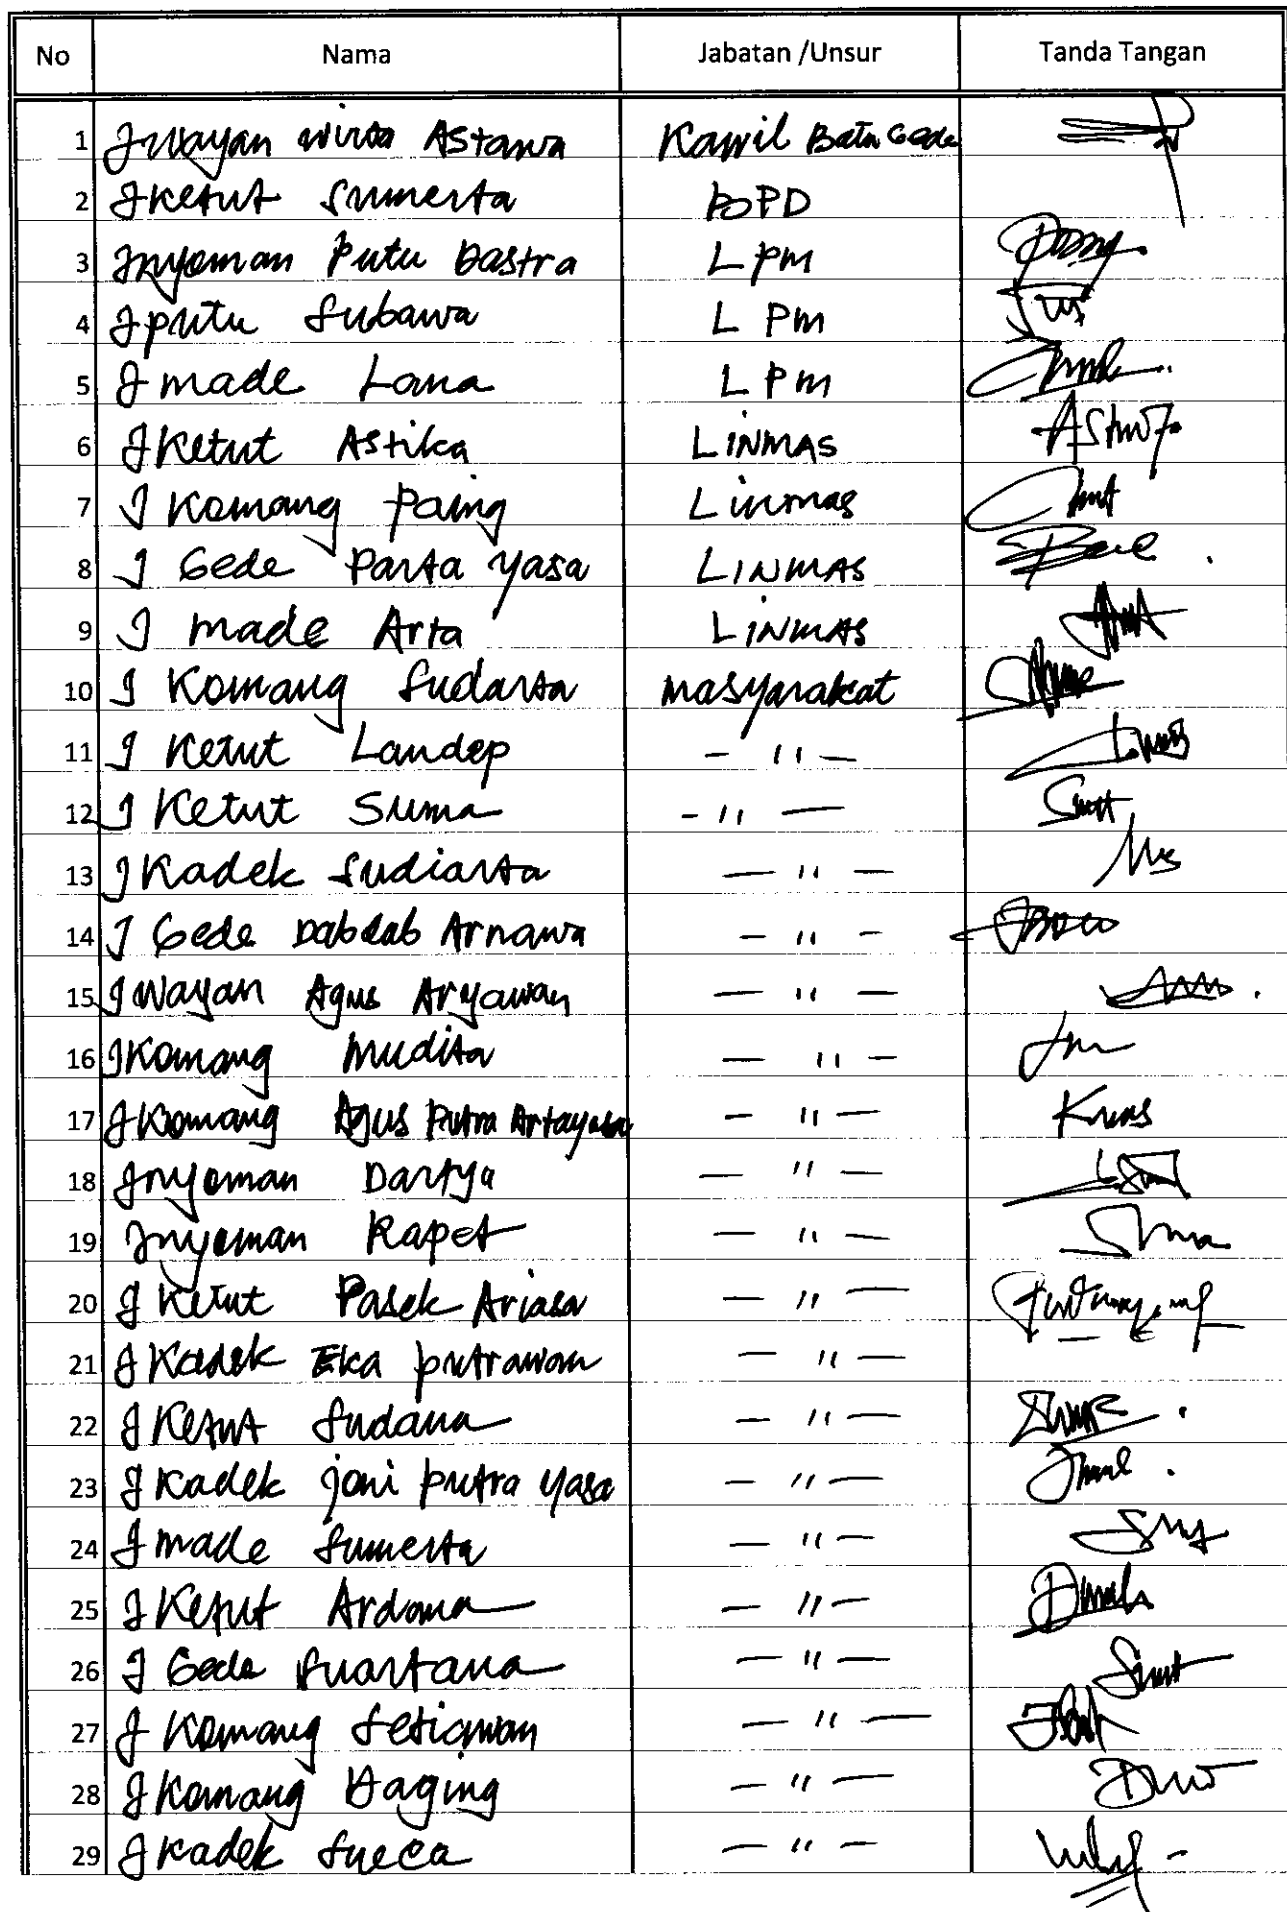 No Nama Jabatan /Unsur Tanda Tangan
1 I Wayan Wirta Astawa Kawil Batu Gede
2 I Ketut Sumerta BPD
3 I Nyoman Putu Dastra LPM
4 I Putu Subawa L PM
5 I Made Lana LPM
6 I Ketut Astika LINMAS
7 I Komang Paing Linmas
8 I Gede Parta Yasa LINMAS
9 I Made Arta LINMAS
10 I Komang Sudarta Masyarakat
11 I Ketut Landep - 11 -
12 I Ketut Suma - 11 -
13 I Kadek Sudiarta - 11 -
14 I Gede Dabdab Arnawa - 11 -
15 I Wayan Agus Aryawan - 11 -
16 I Komang Mudita - 11 -
17 I Komang Agus Putra Artayasa - 11 -
18 I Nyoman Dartya - 11 -
19 I Nyoman Rapet - 11 -
20 I Ketut Pasek Ariasa - 11 -
21 I Kadek Eka Putrawan - 11 -
22 I Ketut Sudana - 11 -
23 I Kadek Joni Putra Yasa - 11 -
24 I Made Sumerta - 11 -
25 I Ketut Ardana - 11 -
26 I Gede Suartana - 11 -
27 I Komang Setiawan - 11 -
28 I Komang Daging - 11 -
29 I Kadek Sueca - 11 -